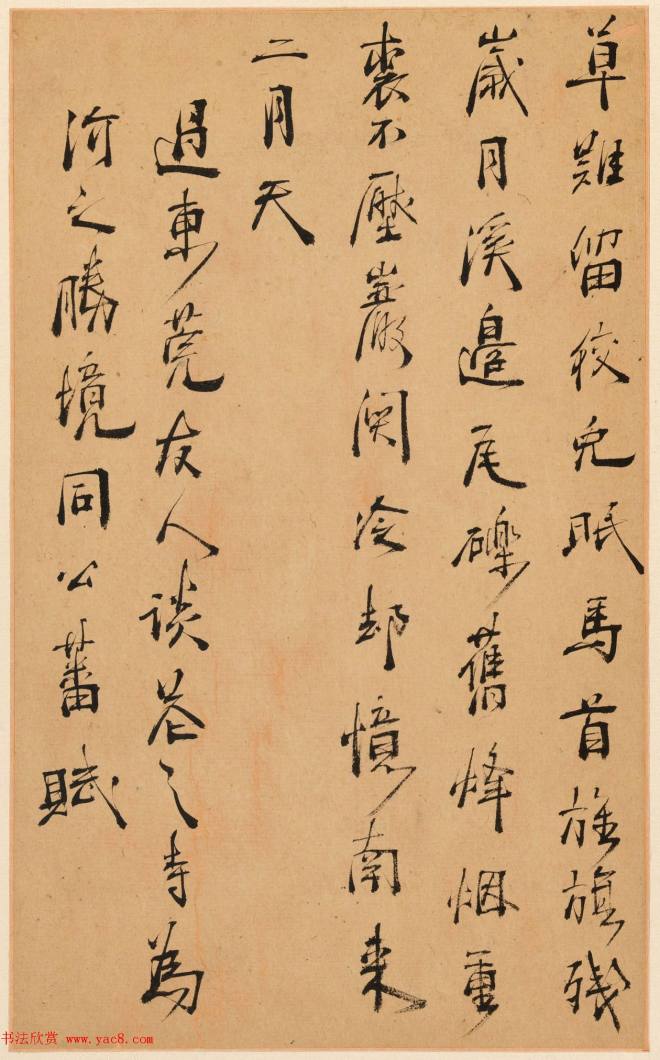 草難留狡兔眠馬首旌旗殘
歲月溪邊瓦礫舊烽烟重
裘不壓巖關冷却憶南來
二月天
過東莞友人談花之寺為
沂之勝境同公蕃賦
书法欣赏 www.yac8.com